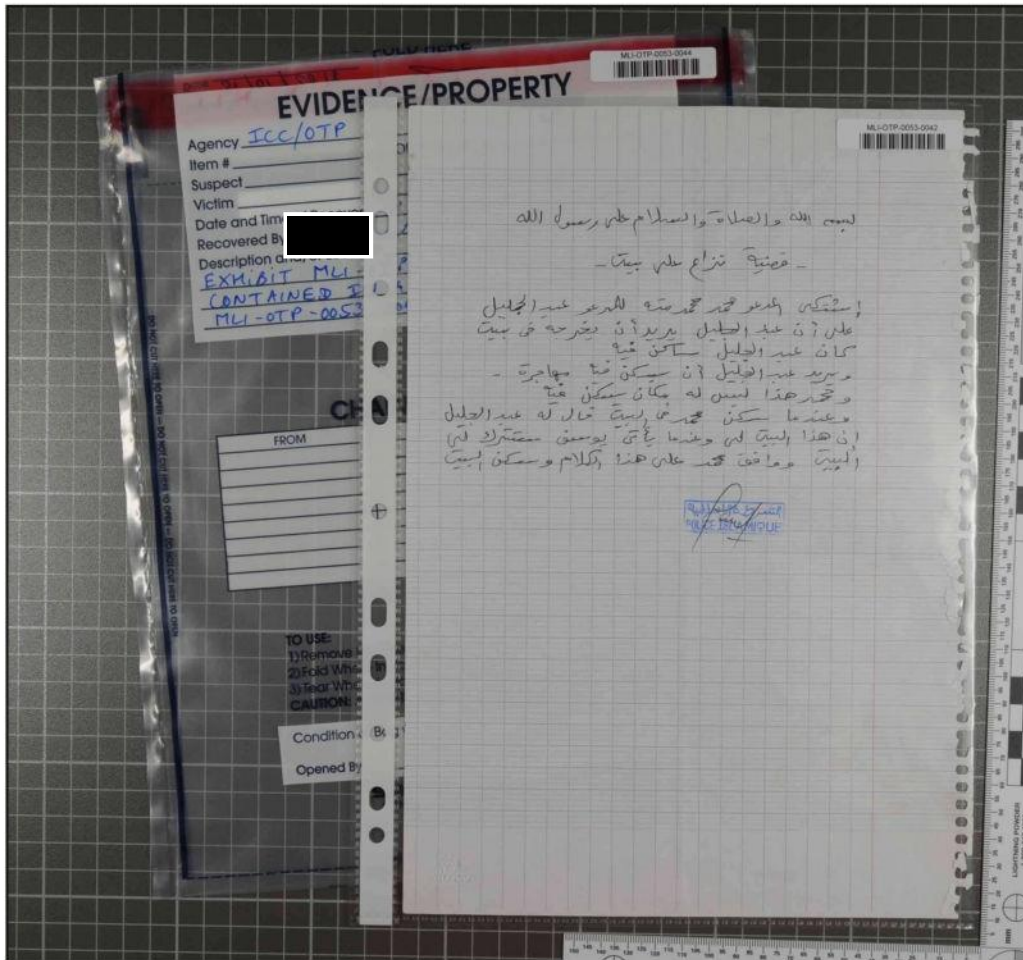 FOLD HERE
MLI-OTP-0053-0044
EVIDENCE/PROPERTY
Agency ICC/OTP
Item #
Suspect
Victim
Date and Time
Recovered By
Description and/or
EXHIBIT MLI-
CONTAINED I
MLI-OTP-0053
CHA
FROM
TO USE:
1) Remove
2) Fold
3) Tear
CAUTION:
Condition of Bag
Opened By
DO NOT CUT HERE TO OPEN – DO NOT CUT HERE TO OPEN – DO NOT CUT HERE TO OPEN
MLI-OTP-0053-0042
بسم الله والصلاة والسلام على رسول الله
- قضية نزاع على بيت -
إشتكى المدعو محمد محمد منه للمدعو عبد الجليل
على أن عبد الجليل يريد أن يخرجه في بيت
كان عبد الجليل ساكن فيه
ويريد عبد الجليل أن يسكن فيه مهاجرة -
ومحمد هذا ليس له مكان يسكن فيه
وعندما سكن محمد في البيت قال له عبد الجليل
إن هذا البيت لي وعندما يأتي يوسف ستترك لي
البيت ووافق محمد على هذا الكلام وسكن البيت
الشرطة الإسلامية
POLICE ISLAMIQUE
LIGHTNING POWDER
mm